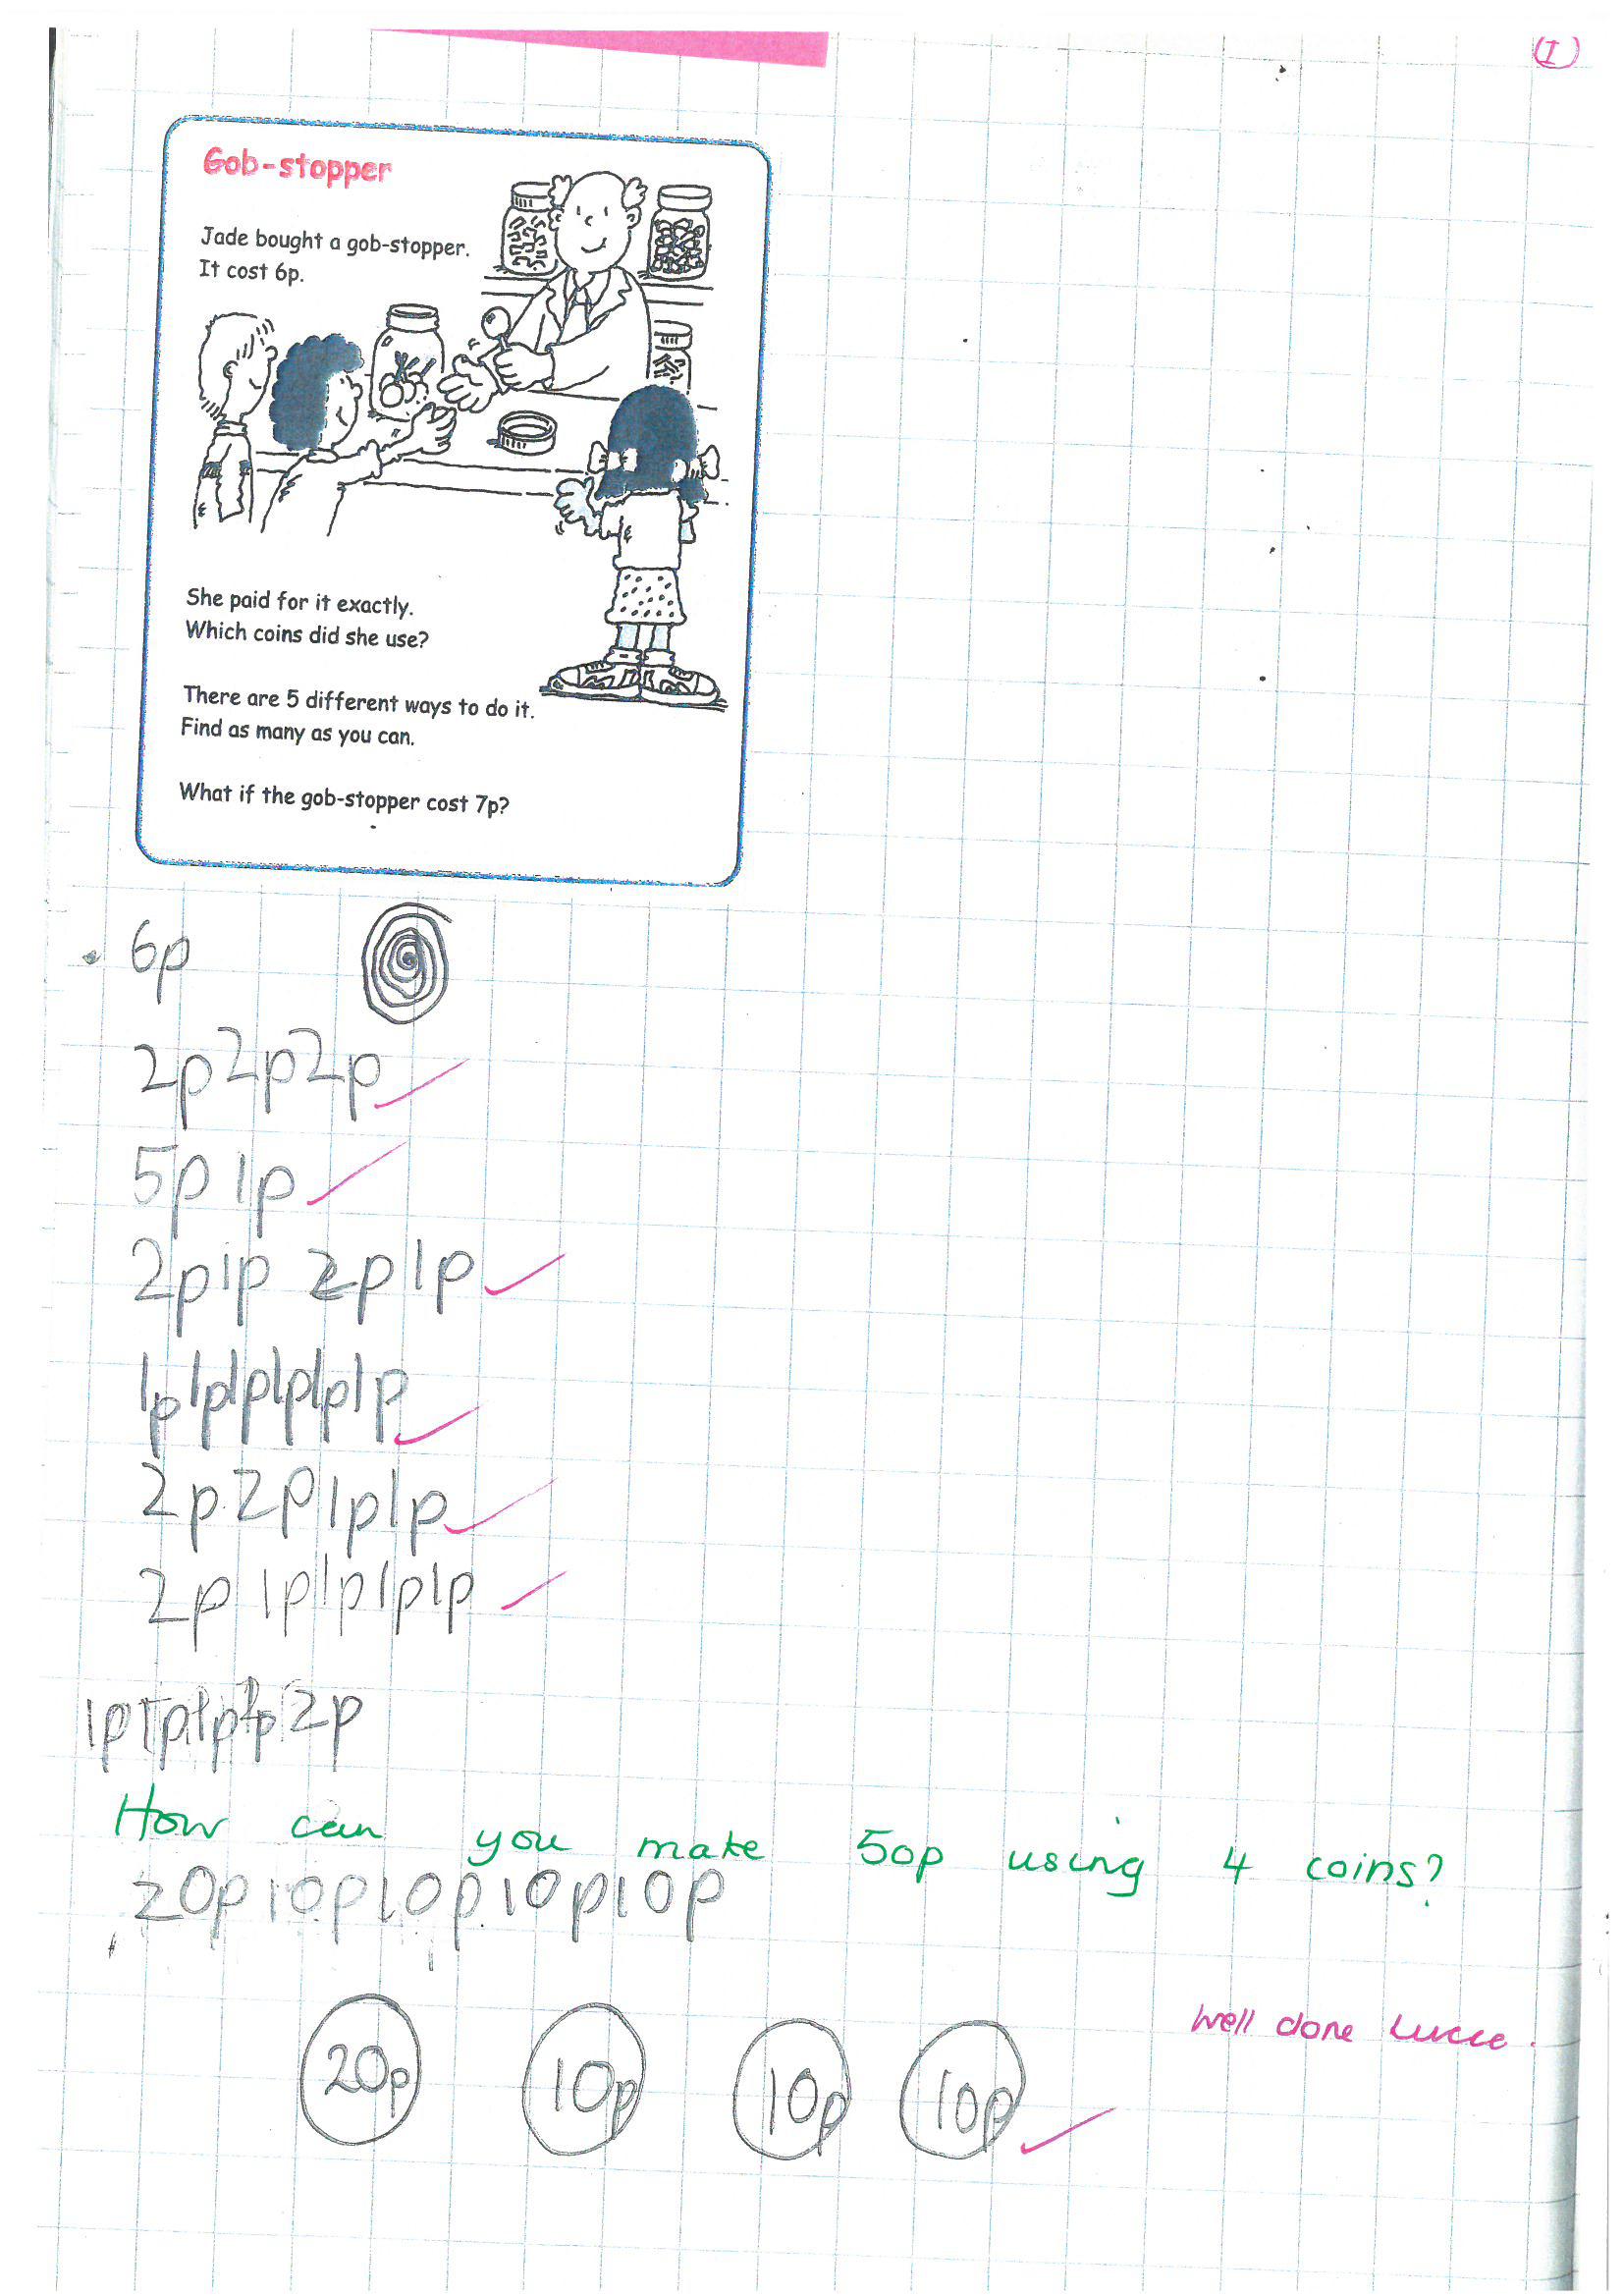 (I)
Gob-stopper
Jade bought a gob-stopper.
It cost 6p.
She paid for it exactly.
Which coins did she use?
There are 5 different ways to do it.
Find as many as you can.
What if the gob-stopper cost 7p?
6p
2p 2p 2p
5p 1p
2p 1p 2p 1p
1p 1p 1p 1p 1p 1p
2p 2p 1p 1p
2p 1p 1p 1p 1p
1p 1p 1p 2p
How can you make 50p using 4 coins?
20p 10p 10p 10p 10p
20p 10p 10p 10p
Well done